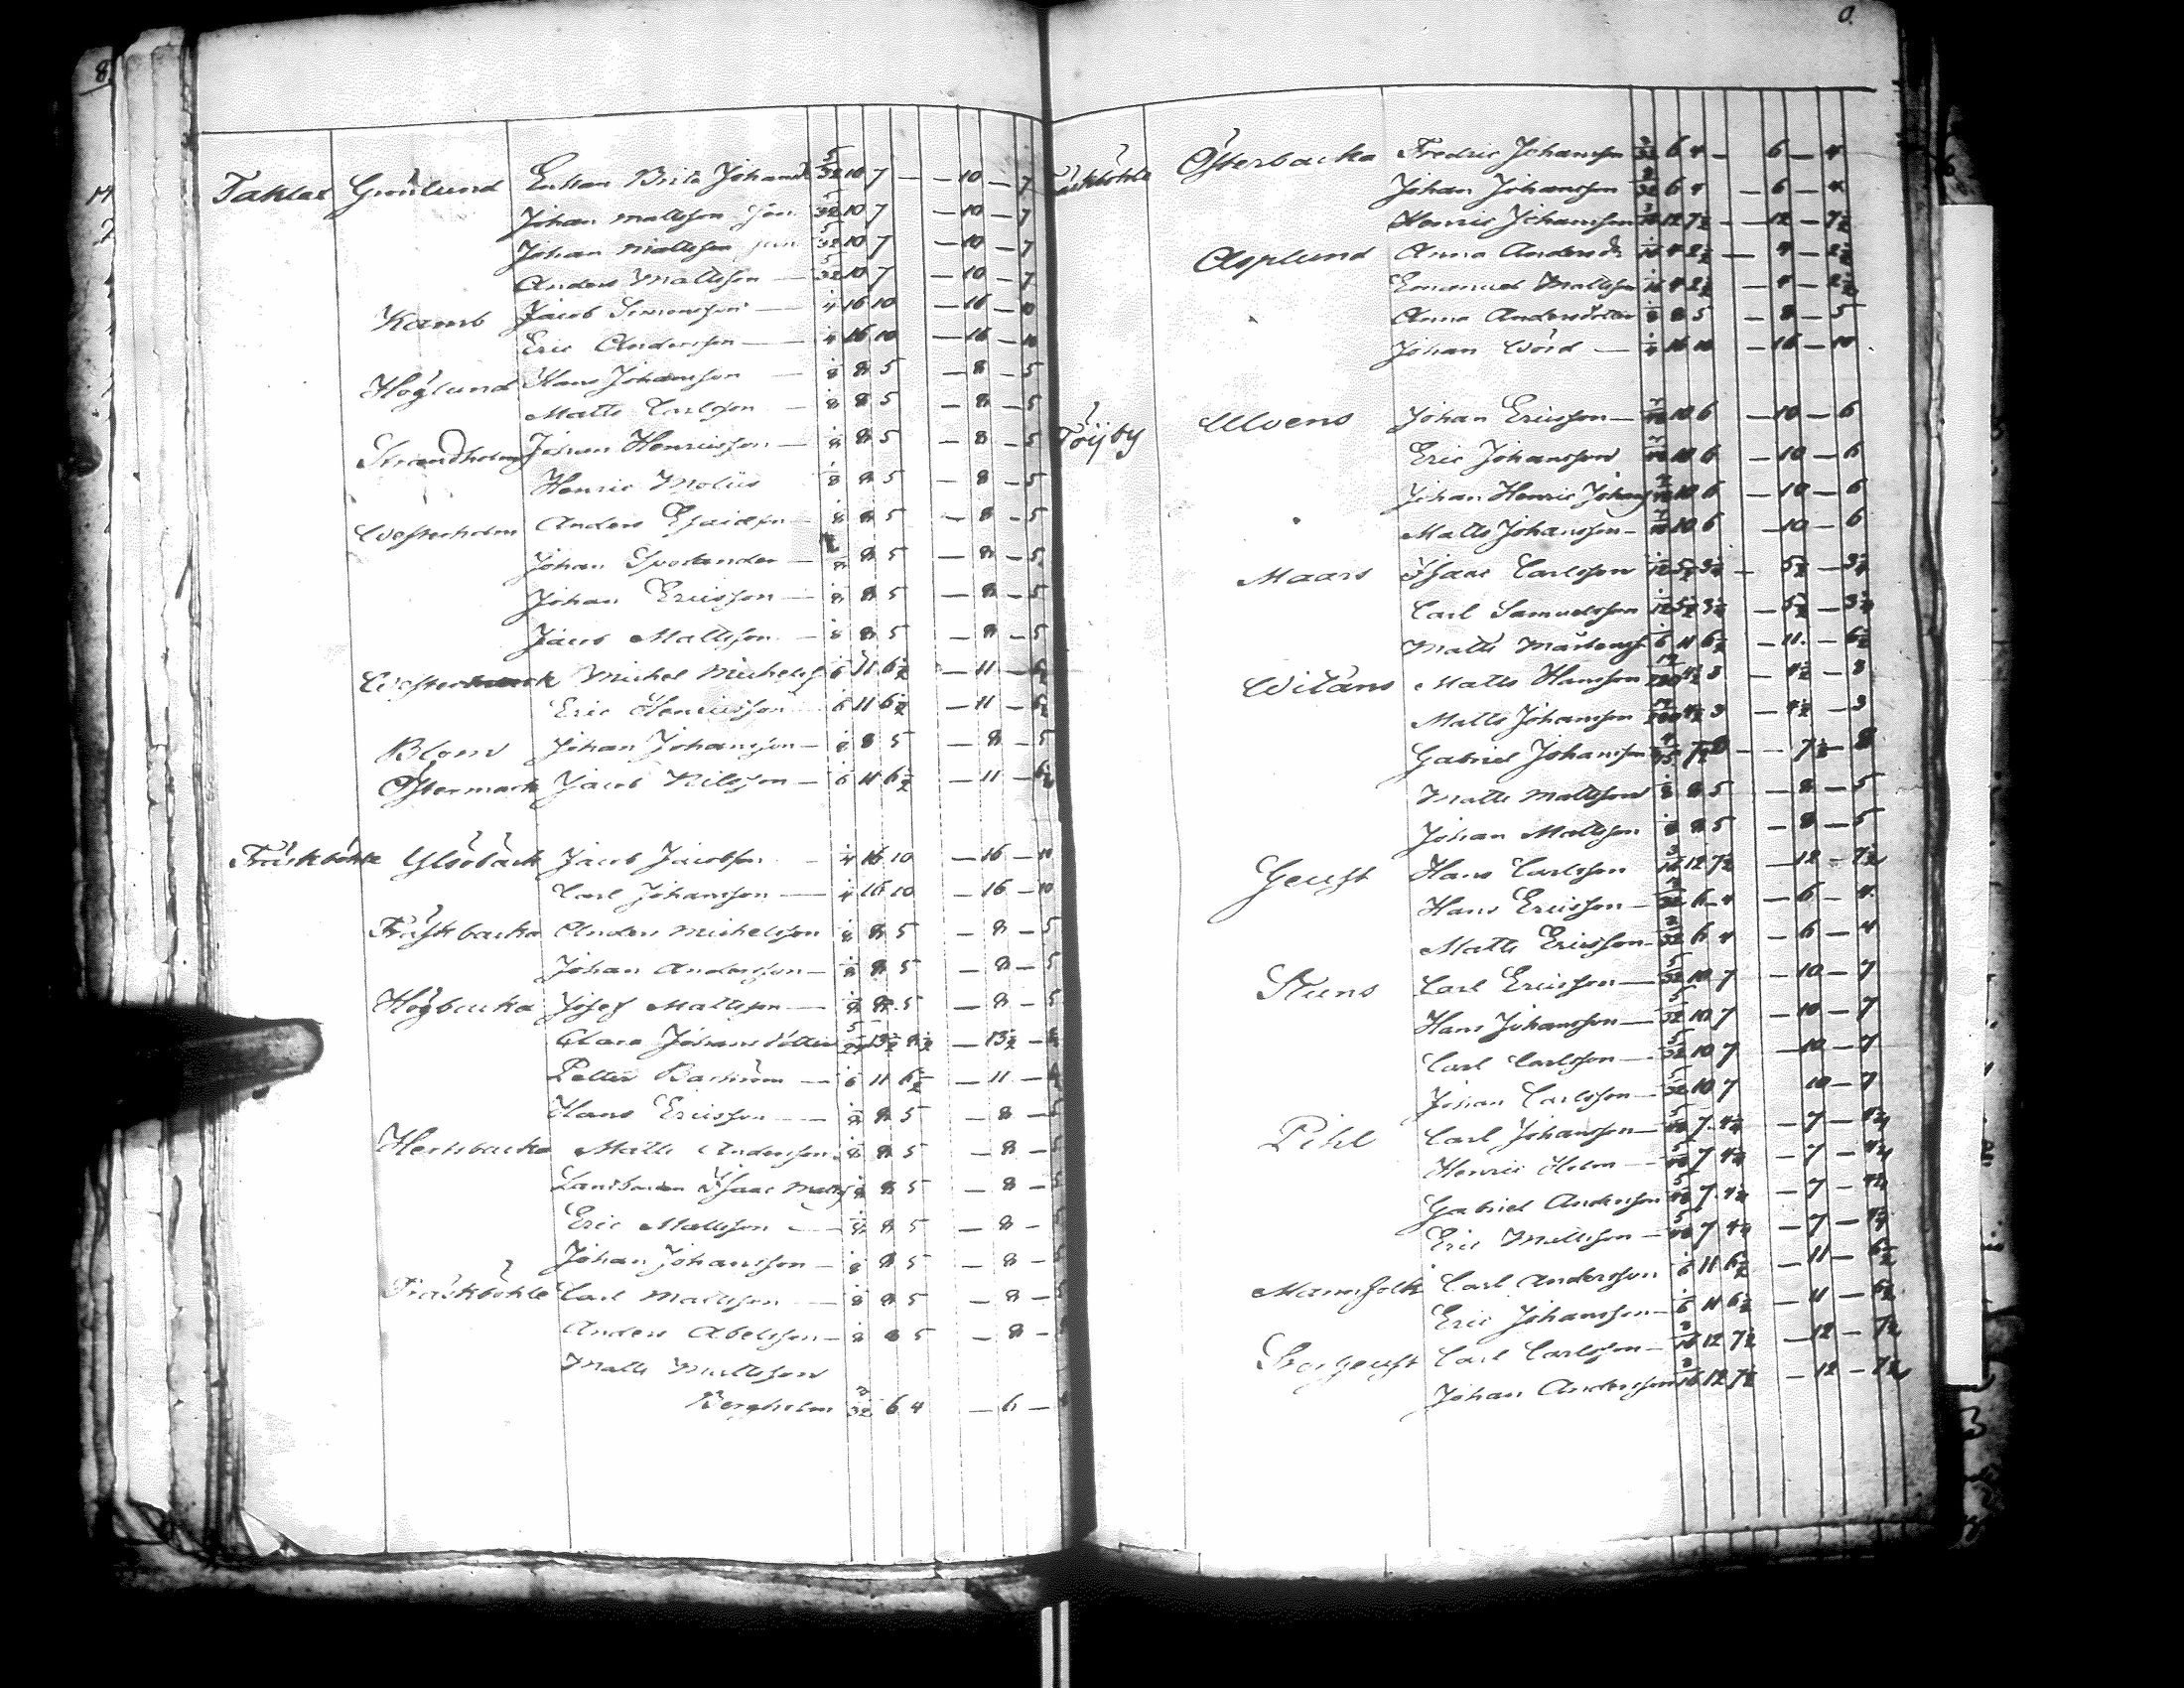 8.
Taklax Grönlund Enkan Brita Johansd 5/32 10 7 — — 10 — 7
Johan Mattsson Sen. 5/32 10 7 — 10 — 7
Johan Mattsson jun 5/32 10 7 — 10 — 7
Anders Mattsson — 5/32 10 7 — 10 — 7
Kamb Jacob Simonsson — 1/4 16 10 — 16 — 10
Eric Andersson — 1/4 16 10 — 16 — 10
Höglund Hans Johansson — 1/8 8 5 — 8 — 5
Matts Carlsson — 1/8 8 5 — 8 — 5
Strandholm Johan Henricsson — 1/8 8 5 — 8 — 5
Henric Molin 1/8 8 5 — 8 — 5
Westerholm Anders Esaidsn — 1/8 8 5 — 8 — 5
Johan — 1/8 8 5 — 8 — 5
Johan Ericsson — 1/8 8 5 — 8 — 5
Jacob Mattsson — 1/8 8 5 — 8 — 5
Michel Michelss 1/6 11 6½ — 11 — 6½
Eric Henricsson 1/6 11 6½ — 11 — 6½
Blom Johan Johansson — 1/8 8 5 — 8 — 5
Östermark Jacob Nilsson — 1/6 11 6½ — 11 — 6½
Träskböhle Glusbäck Jacob Jacobsson — 1/4 16 10 — 16 — 10
Carl Johansson — 1/4 16 10 — 16 — 10
Träskbacka Anders Michelsson 1/8 8 5 — 8 — 5
Johan Andersson — 1/8 8 5 — 8 — 5
Högbacka Josef Mattsson — 1/8 8 5 — 8 — 5
Clara Johansdotter 5/24 13½ 8½ — 13½ —
Petter Backström — 1/6 11 6½ — 11 —
Hans Ericsson — 1/8 8 5 — 8 — 5
Hertsbacka Matts Andersson 1/8 8 5 — 8 — 5
Landbonden Isaac Mattss 1/8 8 5 — 8 — 5
Eric Mattsson — 1/8 8 5 — 8 — 5
Johan Johansson — 1/8 8 5 — 8 — 5
Träskböhle Carl Mattsson — 1/8 8 5 — 8 — 5
Anders Abelsson — 1/8 8 5 — 8 —
Matts Mattsson
Bergholm 3/32 6 4 — 6 —
Träskböhle Österbacka Fredric Johansson 3/32 6 4 — 6 — 4
Johan Johansson 3/32 6 4 — 6 — 4
Henric Johansson 3/16 12 7½ — 12 — 7½
Asplund Anna Andersdr 1/16 4 2½ — 4 — 2½
Emanuel Mattsson 1/16 4 2½ — 4 — 2½
Anna Andersdotter 1/8 8 5 — 8 — 5
Johan Wörd — 1/4 16 10 — 16 — 10
Töijby Ulvens Johan Ericsson — 10 6 — 10 — 6
Eric Johansson 10 6 — 10 — 6
Johan Henric Johanss 10 6 — 10 — 6
Matts Johansson — 10 6 — 10 — 6
Maars Isaac Carlsson 1/12 5½ 3¼ — 5½ — 3¼
Carl Samuelsson 1/12 5½ 3¼ — 5½ — 3¼
Matts Mårtenss 1/6 11 6½ — 11 — 6½
Witans Matts Hansson 4½ 3 — 4½ — 3
Matts Johansson 4½ 3 — 4½ — 3
Gabriel Johansson 7½ 8 — 7½ — 8
Matts Mattsson 1/8 8 5 — 8 — 5
Johan Mattsson 1/8 8 5 — 8 — 5
Geust Hans Carlsson 3/16 12 7½ — 12 — 7½
Hans Ericsson — 3/32 6 4 — 6 — 4
Matts Ericsson — 3/32 6 4 — 6 — 4
Stuns Carl Ericsson — 5/32 10 7 — 10 — 7
Hans Johansson — 5/32 10 7 — 10 — 7
Carl Carlsson — 5/32 10 7 — 10 — 7
Johan Carlsson — 5/32 10 7 10 — 7
Pihl Carl Johansson — 5/48 7 4¼ — 7 — 4¼
Henric Holm — 5/48 7 4¼ — 7 — 4¼
Gabriel Andersson 5/48 7 4¼ — 7 — 4¼
Eric Mattsson — 5/48 7 4¼ — 7 — 4¼
Mannfolk Carl Andersson 1/6 11 6½ — 11 — 6½
Eric Johansson — 1/6 11 6½ — 11 — 6½
Storgeust Carl Carlsson — 3/16 12 7½ — 12 — 7½
Johan Andersson 3/16 12 7½ — 12 — 7½